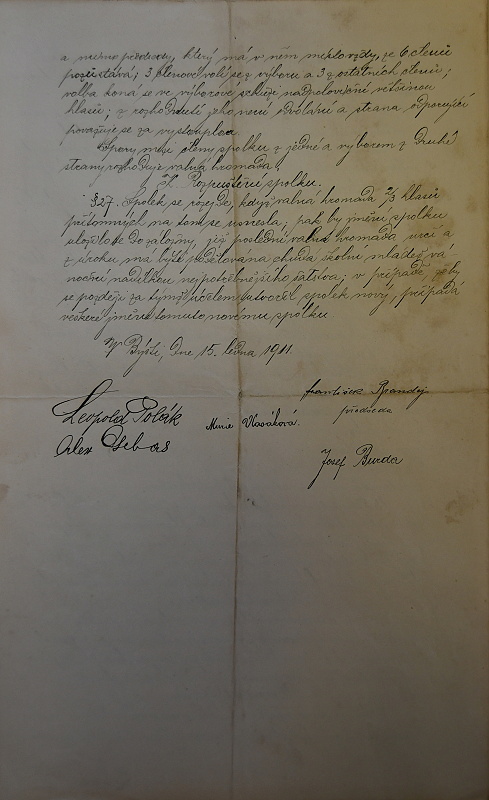 a mimo předsedy, který má v něm místo vždy, ze 6 členů
pozůstává; 3 členové volí se z výboru a 3 z ostatních členů;
volba koná se ve výborové schůzi nadpoloviční většinou
hlasů; z rozhodnutí jeho není odvolání a strana odporující
považuje se za vystouplou.
Spory mezi členy spolku z jedné a výborem z druhé
strany rozhoduje valná hromada.
X. Rozpuštění spolku.
§27. Spolek se rozejde, když valná hromada 2/3 hlasů
přítomných na tom se usnesla; pak by jmění spolku
uložilo se do záložny, již poslední valná hromada určí a
z úroku má býti podělována chudá školní mládež vá-
noční nadílkou nejpotřebnějšího šatstva; v případě, že by
se později za týmž účelem utvořil spolek nový, připadá
veškeré jmění tomuto novému spolku.
V Býšti, dne 15. ledna 1911.
František Brandejs
předseda
Leopold Polák
Marie Vlasáková.
Alex
Josef Burda